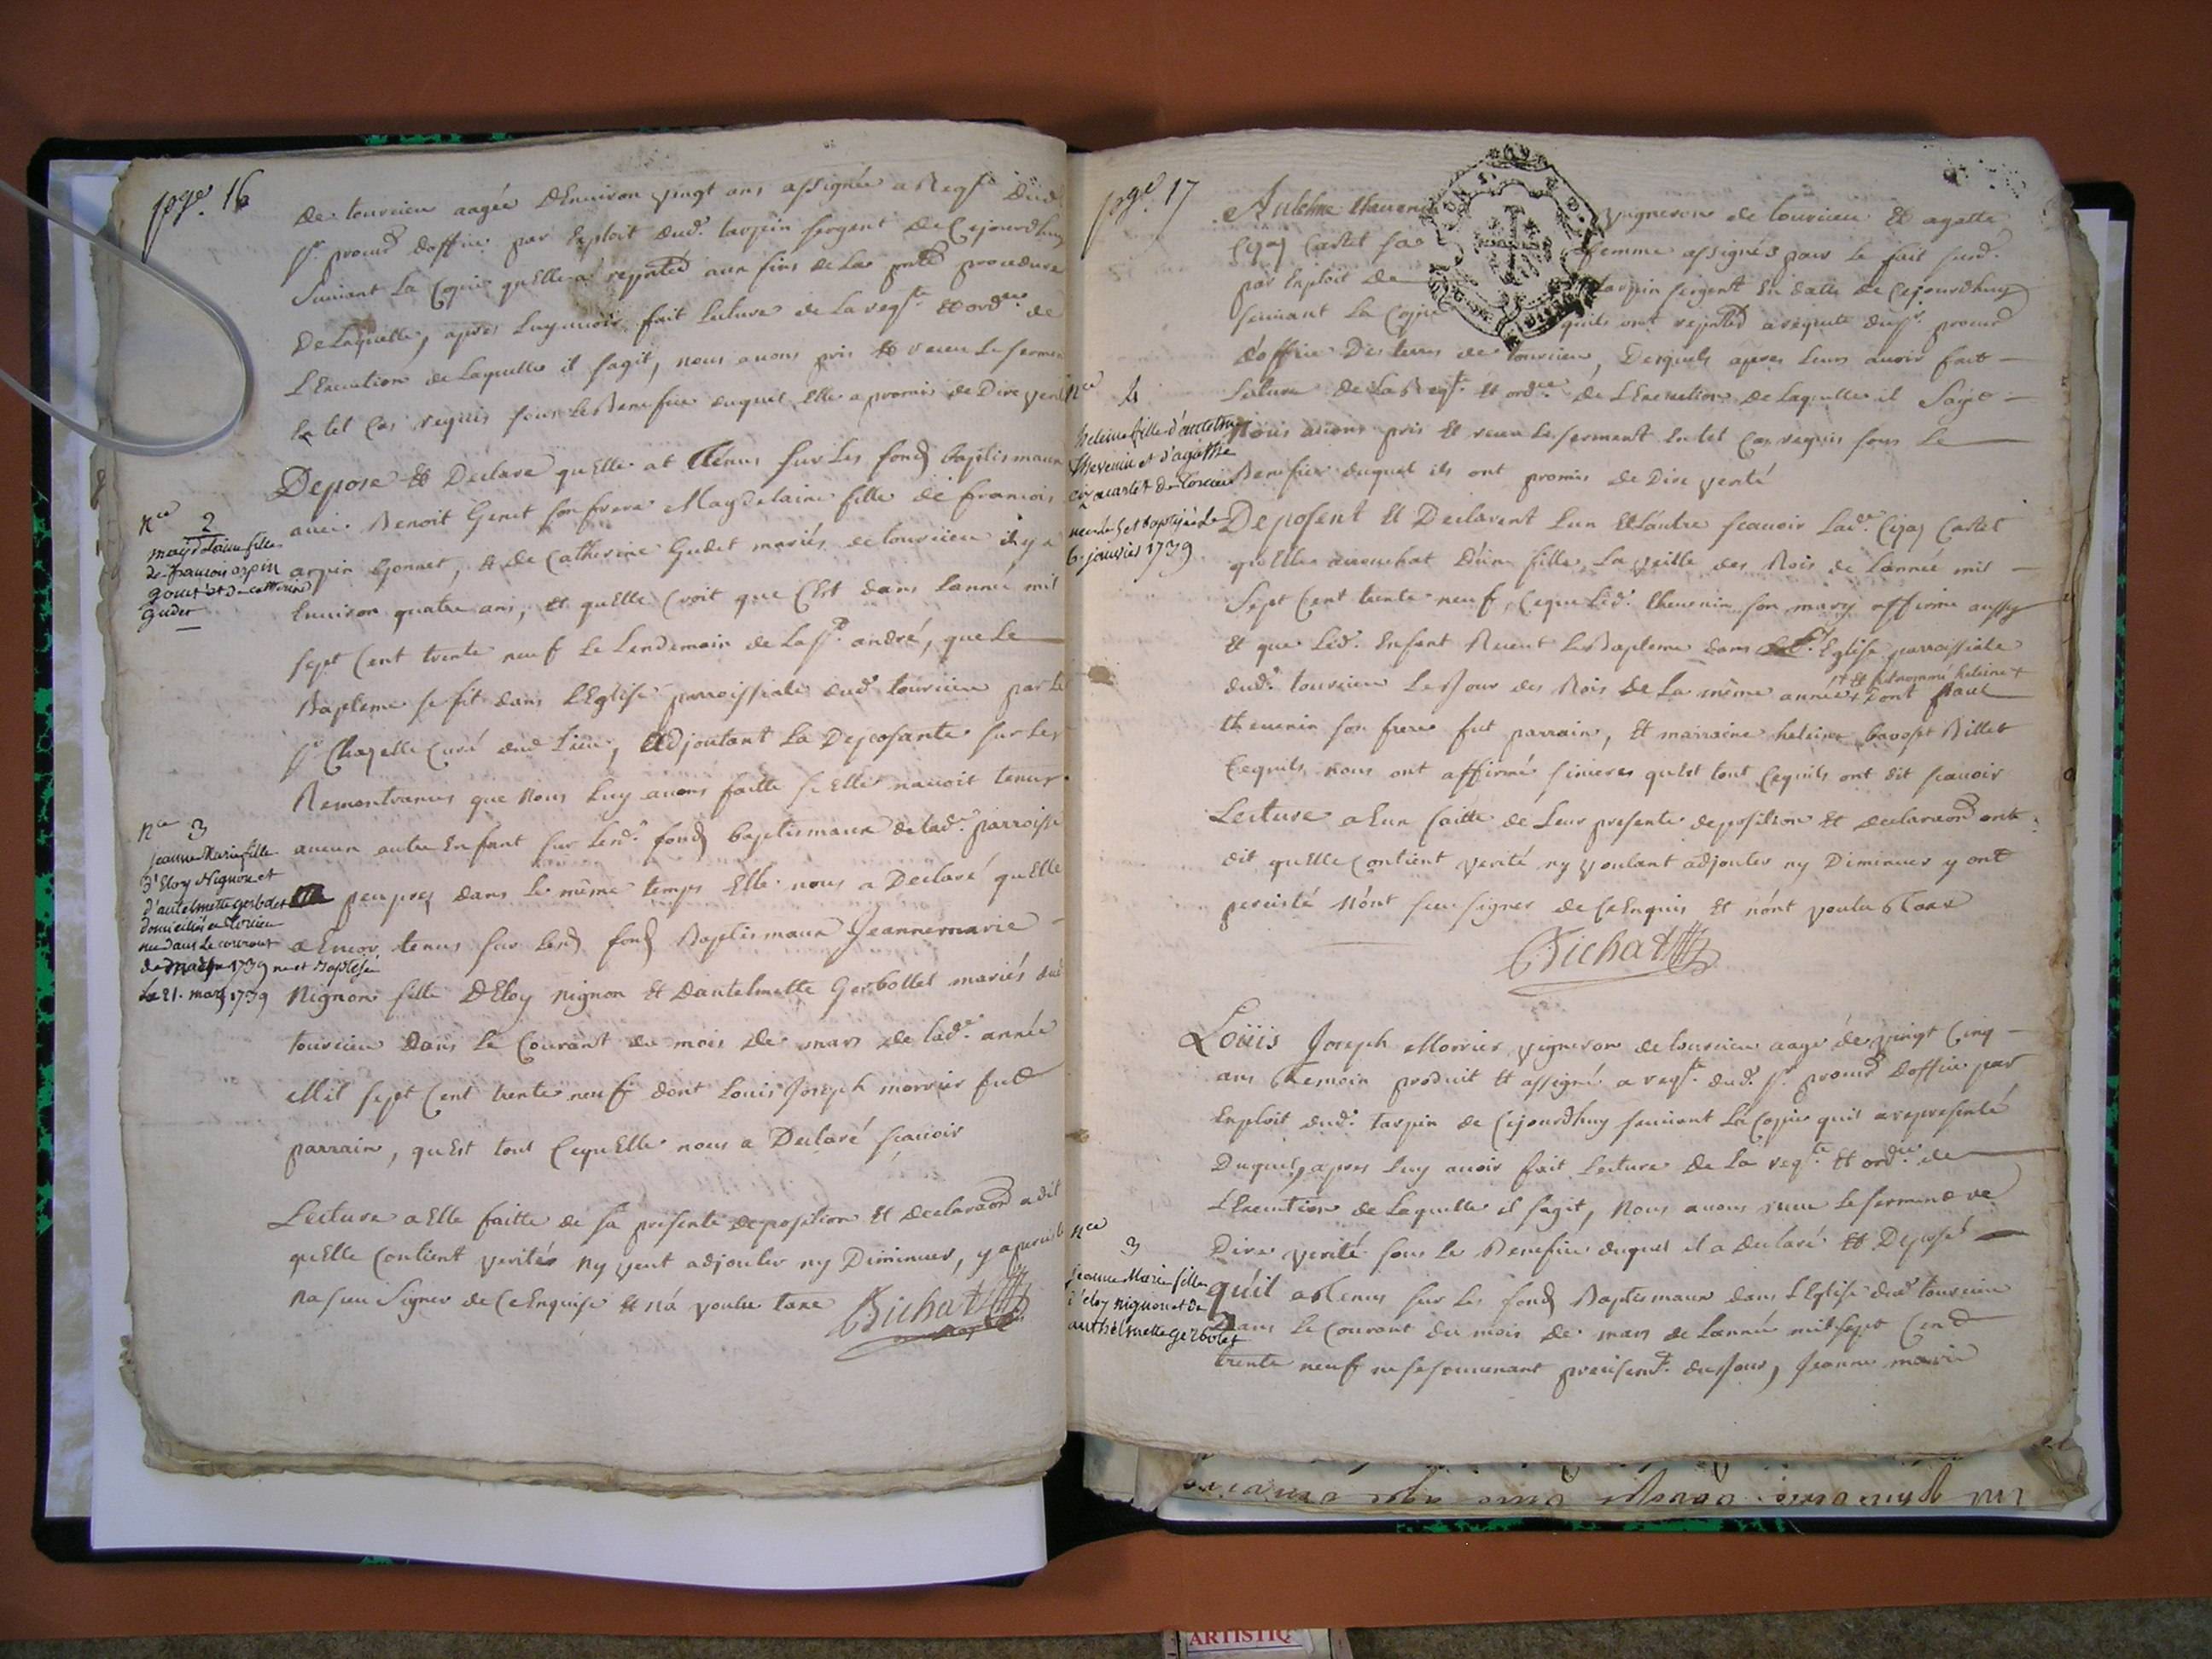 page. 16
de tourcieu aagée d'Environ vingt ans assignée a Reqte. dud.
Sr. procurr d'office par Exploit dud. tarpin sergent de Cejourdhuy
Suivant La Copie quElle a repnté aux fins de La pnte procedure
De Laquelle, apres Luy avoir fait Lecture de La reqte Et ordce. de
L'Execution de Laquelle il sagit, nous avons pris Et receu Le serment
En tel Cas requis sous Le Benefice duquel Elle a promis de Dire verité
Depose Et Declare quElle at Tenus sur Les fonds baptismaux
avec Benoit Genet son frere Magdelaine fille de francois
arpin Gonnet, Et de Catherine Gudet mariés de tourcieu il y a
Environ quatre ans, Et quElle Croit que C'Est dans Lannée mil
sept Cent trente neuf Le Lendemain de La st. andré, que Le
Bapteme se fit dans LEglise parroissiale dud. tourcieu par Le
Sr Chapelle Curé dud Lieu, Adjoutant La Deposante sur Les
Remontrances que Nous Luy avons faitte si Elle navoit tenus
aucun autre Enfant sur Lesd. fonds baptismaux de lad. parroisse
peupres dans Le même temps Elle nous a Declaré quElle
a Encor tenus sur Lesd fonds Baptismaux Jeanne marie
Nignon fille DEloy nignon Et Dantelmette Gerbollet mariés dud
tourcieu Dans Le Courant du mois de mars de lad. année
Mil sept Cent trente neuf dont Louis Joseph morrier fut
parrain, quEst tout CequElle nous a Declaré scavoir
Lecture a Elle faitte de sa presente deposition Et declaraon a dit
quElle Contient verité Ny veut adjouter ny Diminuer, y a persisté
Na sceu Signer de Ce Enquise Et n'a voulu taxe
Bichat
nce 2
magdelaine fille
de francois arpin
gonet et de catherine
gudet
nce 3
jeanne Marie fille
d'Eloy Nignon et
d'antelmette gerbolet
domiciliés a torcieu
née dans Le courant
de mars 1739 ne et Baptisée
Le 21. mars 1739
page 17
Antelme thevenin vigneron de tourcieu Et agatte
Cizas Castet sa femme assignés pour Le fait susd.
par Exploit de tarpin sergent En datte de Cejourdhuy
suivant La Copie quils ont repnté a requete du sr. procur
d'office Des terres de tourcieu, Desquels apres Leurs avoir fait
Lecture de La Reqt. Et ordce. de LExecution de Laquelle il Sagit
Nous avons pris Et receu Le serment En tel Cas requis sous Le
Benefice duquel ils ont promis de Dire verité
Deposent Et Declarent Lun Et Lautre scavoir Lade. Cizas Castet
quElle accouchat D'une fille, La veille des Rois de Lannée mil
Sept Cent trente neuf, Ceque Led. thevenin son mary affirme aussy
Et que Led. Enfant Receut Le Bapteme dans Eglise parrossiale
dud. tourcieu Le Jour des Rois De La même année + Dont paul
+ Et fut nommé heleine +
thevenin son frere fut parrain, Et marraine heleine bavoset Billet
Cequils nous ont affirmé sincere, quEst tout Cequils ont dit scavoir
Lecture a Eux faitte de Leur presente deposition Et declaraon ont
dit quElle Contient verité ny voulant adjouter ny Diminuer y ont
persisté N'ont sceu signer de Ce Enquis Et n'ont voulu Taxe
Bichat
Loüis Joseph Morrier vigneron de tourcieu aagé de vingt Cinq
ans Temoin produit Et assigné a reqt. dud. sr. procur Doffice par
Exploit dud. tarpin de Cejourdhuy suivant La Copie quil a representé
Duquel, apres Luy avoir fait Lecture de La reqte. Et ordce. de
LExecution de Laquelle il sagit, Nous avons receu Le serment de
Dire verité sous Le Benefice duquel il a declaré Et Deposé
qu'il a Tenus sur Les fonds Baptismaux dans LEglise dud tourcieu
Dans Le Courant du mois de mars de Lannée mil sept Cent
trente neuf ne se souvenant precisemt. du Jour, Jeanne marie
nce 4
heleine fille d'antelme
thevenin et d'agathe
cizas castet de torcieu
née le 5 et baptisée Le
6. janvier 1739
nce 3
jeanne Marie fille
d'eloy nignon et de
anthelmette gerbolet
ARTISTIQ